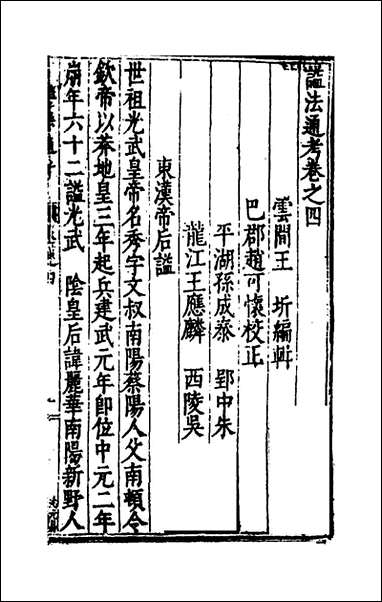 諡法通考卷之四
雲間王圻編輯
巴郡趙可懷校正
平湖孫成泰 郢中朱
龍江王應麟 西陵吳
東漢帝后諡
世祖光武皇帝名秀字文叔南陽蔡陽人父南頓令
欽帝以莽地皇三年起兵建武元年即位中元二年
崩年六十二諡光武 陰皇后諱麗華南陽新野人